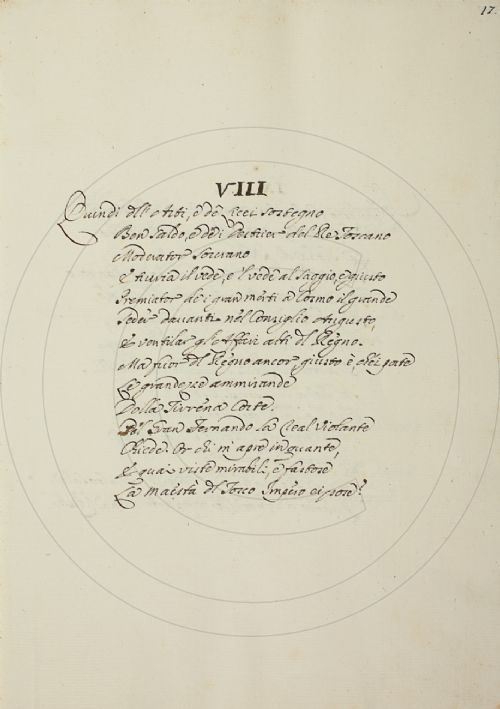 17.
VIII
Quindi dell' Arti, e de' Licei sostegno
Ben saldo, e del del Re Toscano
Moderator Sovrano
Etruria il vede, e 'l vede al Saggio, e giusto
Premiator de' gran merti a Cosmo il grande
Seder davanti nel Consiglio Augusto,
E ventilar gli Affari alti del Regno.
Ma fuor del Regno ancor, giusto è, che
Le grand' ammirande
Della Tirrena Corte.
Gran Fernando la Real Violante
Chiede. Or chi m'apre in quante,
E quai viste mirabili, e fastose
La maestà del Tosco Impero